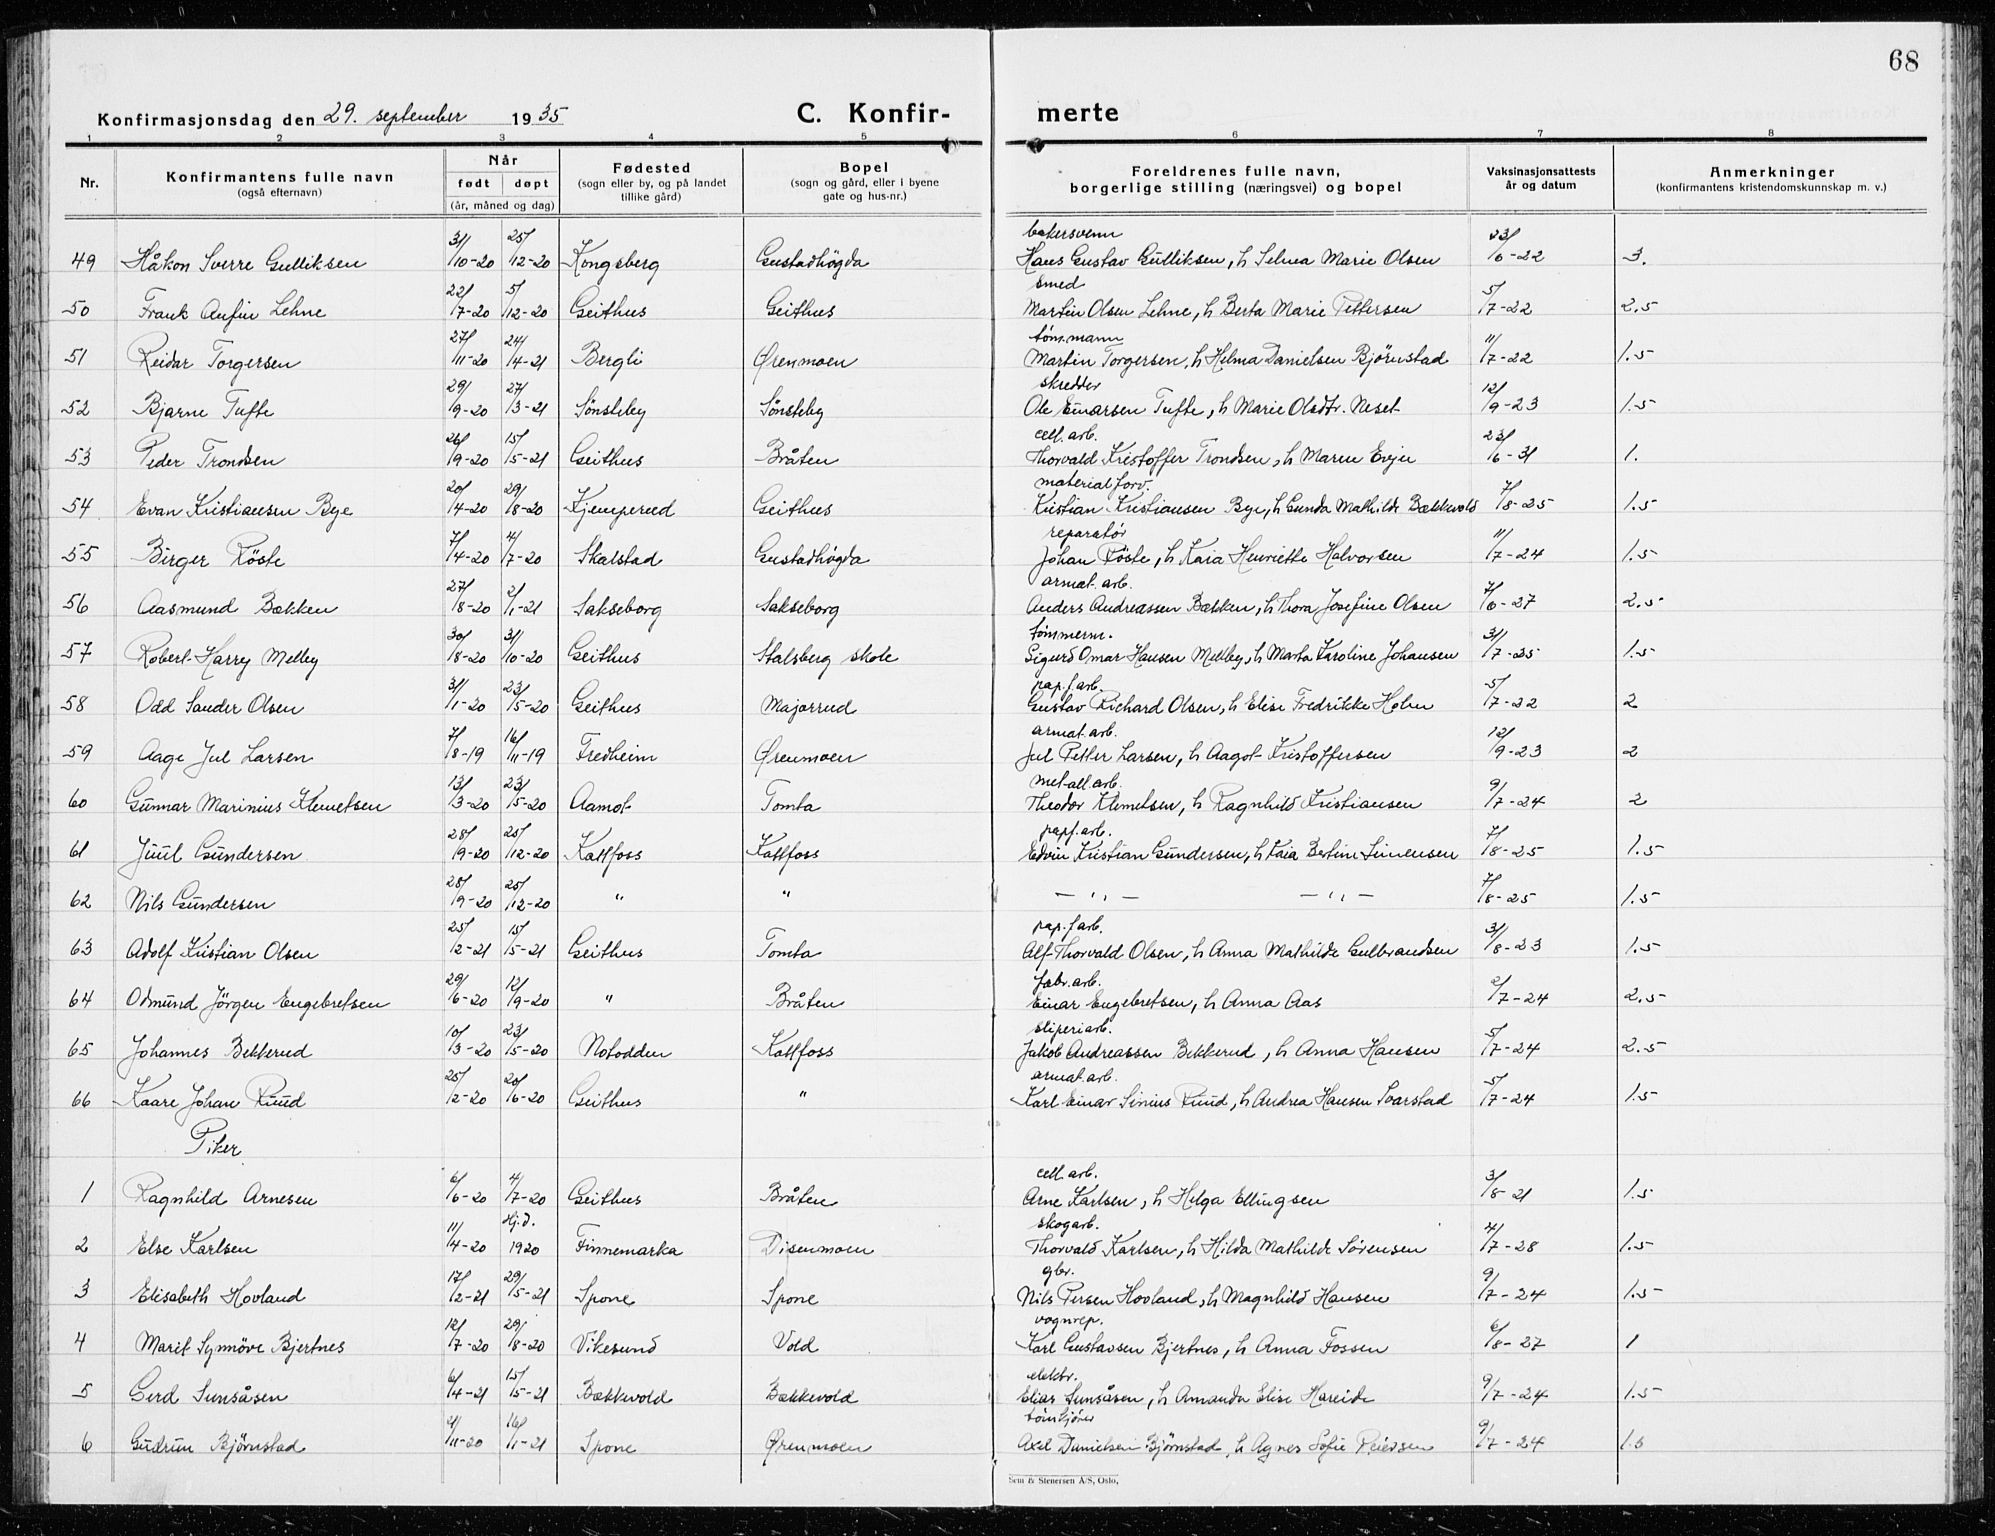 68
Konfirmasjonsdag den 29. september 1935 C. Konfir- merte
1 2 3 4 5 6 7 8
Nr. Konfirmantens fulle navn (også efternavn) Når født døpt (år, måned og dag) Fødested (sogn eller by, og på landet tillike gård) Bopel (sogn og gård, eller i byene gate og hus-nr.) Foreldrenes fulle navn, borgerlige stilling (næringsvei) og bopel Vaksinasjonsattests år og datum Anmerkninger (konfirmantens kristendomskunnskap m. v.)
bakersvenn
49 Håkon Sverre Gulliksen 31/10-20 25/12-20 Kongsberg Gustadhögda Hans Gustav Gulliksen, h Selma Marie Olsen 23/6-22 3.
smed
50 Frank Anfin Lehne 22/7-20 5/12-20 Geithus Geithus Martin Olsen Lehne, h Berta Marie Pettersen 5/7-22 2.5
töm.mann
51 Reidar Torgersen 27/11-20 24/4-21 Bergli Ørenmoen Martin Torgersen, h Helma Danielsen Bjørnstad 11/7-22 1.5
skredder
52 Bjarne Tufte 29/9-20 27/3-21 Sönsteby Sönsteby Ole Einarsen Tufte, h Marie Olsdtr. Neset 12/9-23 1.5
cell. arb.
53 Peder Trondsen 26/9-20 15/5-21 Geithus Bråten Thorvald Kristoffer Trondsen, h Maren Evju 23/6-31 1.
materialforv.
54 Evan Kristiansen Bye 20/4-20 29/8-20 Kjemperud Geithus Kristian Kristiansen Bye, h Gunda Mathilde Bækkevold 7/8-25 1.5
reparatör
55 Birger Röste 7/4-20 4/7-20 Skalstad Gustadhögda Johan Röste, h Kaia Henriette Halvorsen 11/7-24 1.5
armat. arb.
56 Aasmund Bækken 27/8-20 2/1-21 Sakseborg Sakseborg Anders Andreassen Bækken, h Thora Josefine Olsen 7/6-27 2.5
tömmerm.
57 Robert Harry Melby 30/8-20 31/10-20 Geithus Stalsberg skole Sigurd Omar Hansen Melby, h Marta Karoline Johansen 31/7-25 1.5
pap.f.arb.
58 Odd Sander Olsen 31/1-20 23/5-20 Geithus Majorrud Gustav Richard Olsen, h Elise Fredrikke Holm 5/7-22 2
armat. arb.
59 Aage Jul Larsen 7/8-19 16/11-19 Fredheim Ørenmoen Jul Petter Larsen, h Aagot Kristoffersen 12/9-23 2
met-all. arb.
60 Gunnar Marinius Klemetsen 13/3-20 23/5-20 Aamot Tomta Theodor Klemetsen, h Ragnhild Kristiansen 9/7-24 2
papf. arb.
61 Juul Gundersen 28/9-20 25/12-20 Kattfoss Kattfoss Edvin Kristian Gundersen, h Kaia Bertine Simensen 7/8-25 1.5
62 Nils Gundersen 28/9-20 25/12-20 " " — " — — " — 7/8-25 1.5
pap.f.arb.
63 Adolf Kristian Olsen 25/2-21 15/5-21 Geithus Tomta Alf Thorvald Olsen, h Anna Mathilde Gulbrandsen 31/8-23 1.5
fabr. arb.
64 Odmund Jörgen Engebretsen 29/6-20 12/9-20 " Bråten Einar Engebretsen, h Anna Aas 2/7-24 2.5
sliperiarb.
65 Johannes Bekkerud 10/3-20 23/5-20 Notodden Kattfoss Jakob Andreassen Bekkerud, h Anna Hansen 5/7-24 2.5
armat. arb.
66 Kaare Johan Ruud 25/2-20 20/6-20 Geithus " Karl Einar Sinius Ruud, h Andrea Hansen Soarstad 5/7-24 1.5
Piker
cell. arb.
1 Ragnhild Arnesen 6/6-20 4/7-20 Geithus Bråten Arne Karlsen, h Helga Ellingsen 3/8-21 1.5
skogarb.
2 Else Karlsen 11/4-20 Hj.d. 1920 Finnemarka Disenmoen Thorvald Karlsen, h Hilda Mathilde Sörensen 4/7-28 1.5
gbr.
3 Elisabeth Hovland 17/2-21 29/5-21 Spone Spone Nils Persen Hovland, h Magnhild Hansen 9/7-24 1.5
vognrep.
4 Marit Synnöve Bjertnes 12/7-20 29/8-20 Vikesund Vold Karl Gustavsen Bjertnes, h Anna Fossen 6/8-27 1
elektr.
5 Gerd Sunsåsen 6/4-21 15/5-21 Bækkevold Bækkevold Elias Sunsåsen, h Amanda Elise Hareide 9/7-24 1.5
6 Gudrun Bjørnstad 21/11-20 16/1-21 Spone Ørenmoen Axel Danielsen Bjørnstad, h Agnes Sofie Reiersen 9/7-24 1.5
Sem & Stenersen A/S, Oslo.